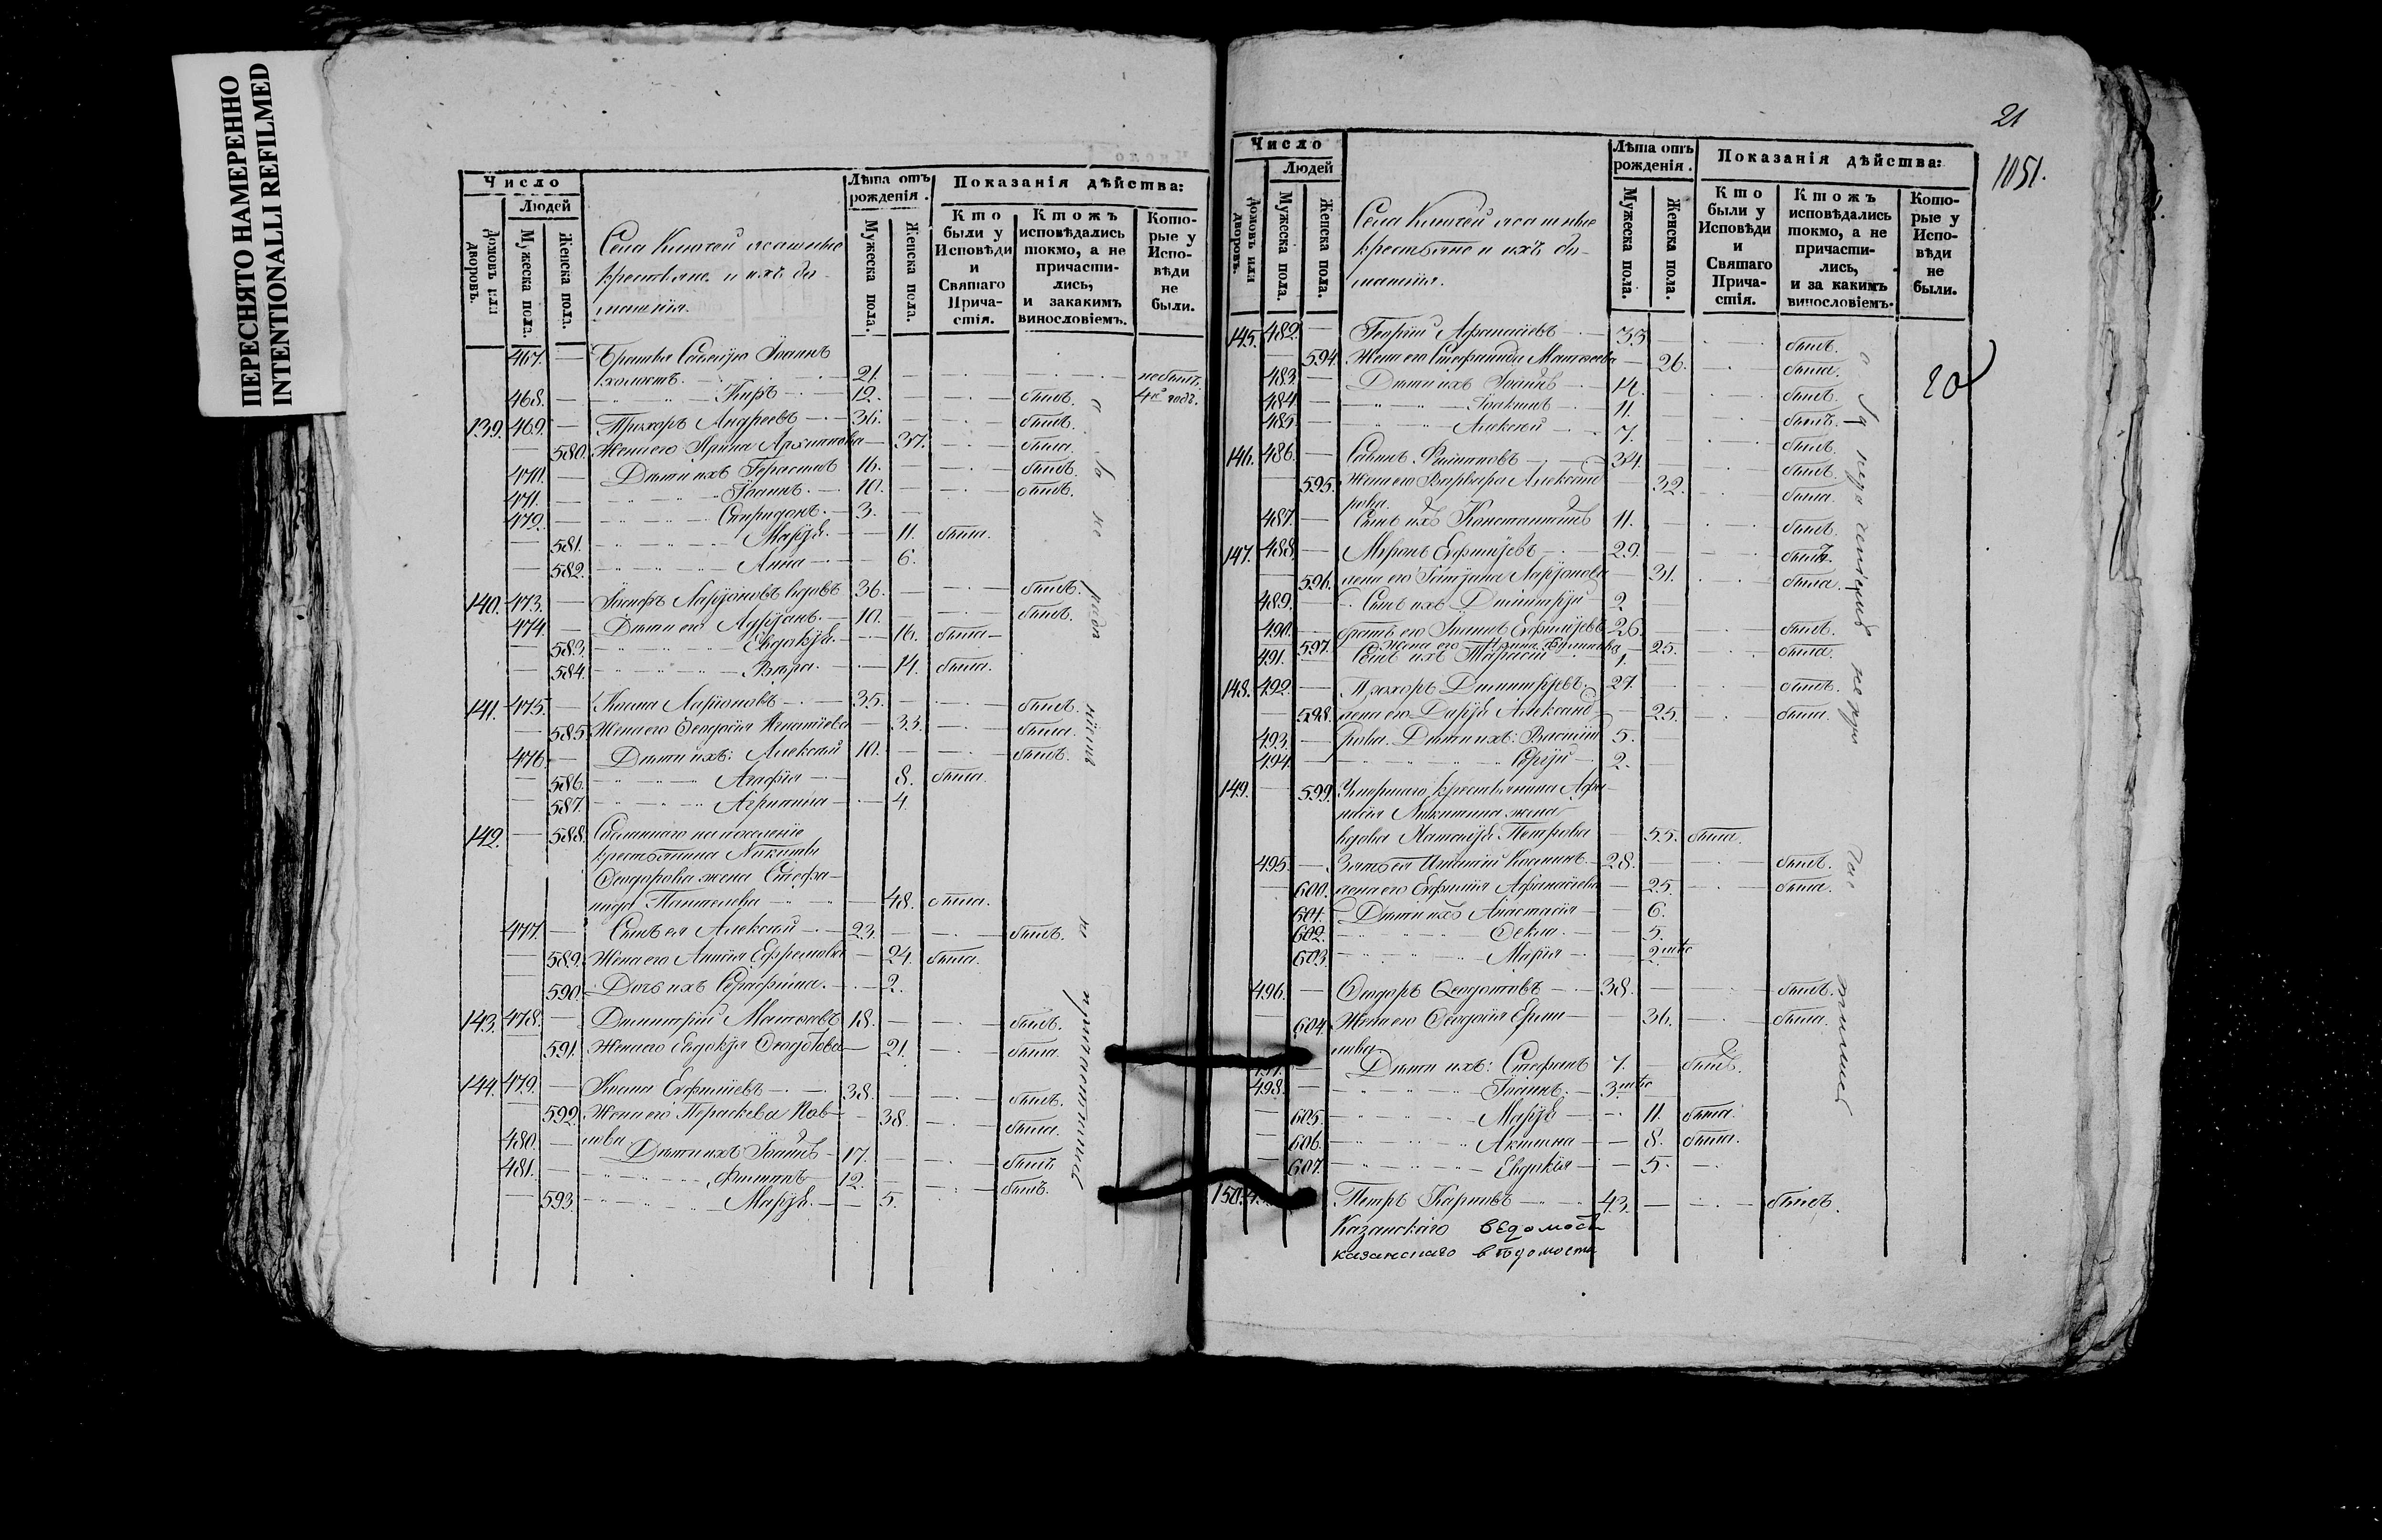 ПЕРЕСНЯТО НАМЕРЕННО
INTENTIONALLI REFILMED
Число
Людей
Домовъ или дворовъ.
Мужеска пола.
Женска пола.
Села Ключей ясашные
крестьяне и ихъ до-
машнія.
Лѣта отъ рожденія.
Мужеска пола.
Женска пола.
Показанія дѣйства:
Кто были у Исповѣди и Святаго Прича-стія.
Ктожъ исповѣдались токмо, а не причасти-лись, и закакимъ винословіемъ.
Кото-рые у Испо-вѣди не были.
467. — Іоаннъ
холостъ. 21. не былъ.
468. — Киръ 12. былъ. 4й годъ.
139. 469. — Прохоръ Андреевъ 36. былъ.
580. Жена его Ирина Архипова 37. была.
470. — Дѣти ихъ Герасимъ 16. былъ.
471. — Іоаннъ. 10. былъ.
472. — Спиридонъ. 3.
581. Марія. 11. была.
582. Анна 6.
140. 473. — Іосифъ Ларіоновъ вдовъ 36. былъ.
474. — Дѣти его Адріанъ. 10. былъ.
583. Евдокія. 16. была
584. Вѣра. 14. была.
141. 475. — Косма Ларіоновъ 35. былъ.
585. Жена его Ѳеодосія Игнатіева 33. была.
476. — Дѣти ихъ: Алексѣй 10. былъ.
586. Агафія 8. была.
587. Агрипина 4.
142. — 588. Сосланнаго на поселеніе
крестьянина Никиты
Ѳеодорова жена Стефа-
нида Пантелева 48. была.
477. — Сынъ ея Алексѣй 23. былъ.
589. Жена его Анисія Ефремова 24. была.
590. Дочь ихъ Серафима. 2.
143. 478. — Димитрій Матѳеевъ 18. былъ.
591. Жена его Евдокія Ѳеодотова 21. была.
144. 479. — Косма Евфиміевъ 38. былъ.
592. Жена его Параскева Іов- 38. была.
480. — лева Дѣти ихъ Іоаннъ 17. былъ
481. — Филипъ 12. былъ.
593. Марія. 5.
21
1051.
20
Число
Людей
Домовъ или дворовъ.
Мужеска пола.
Женска пола.
Села Ключей ясашные
крестьяне и ихъ до-
машнія.
Лѣта отъ рожденія.
Мужеска пола.
Женска пола.
Показанія дѣйства:
Кто были у Исповѣди и Святаго Прича-стія.
Ктожъ исповѣдались токмо, а не причасти-лись, и за какимъ винословіемъ.
Кото-рые у Испо-вѣди не были.
145. 482. — Георгій Афанасіевъ 33 былъ.
594. Жена его Стефанида Матѳеева 26. была.
483. — Дѣти ихъ Іоаннъ 14. былъ.
484. — Іоакимъ 11. былъ.
485. — Алексѣй 7. былъ.
146. 486. — Савинъ Филиповъ 34. былъ.
595. Жена его Варвара Александ 32. была.
рова.
487. — Сынъ ихъ Константинъ 11. былъ.
147. 488. — Миронъ Евфиміевъ 29. былъ.
596. жена его Татіана Ларіонова 31. была.
489. — Сынъ ихъ Димитрій 2
490. — братъ его Іоаннъ Евфиміевъ 26. былъ.
597. Жена его 25. была.
491. Сынъ ихъ Тарасій 1.
148. 492. — Прохоръ Димитріевъ. 27. былъ.
598. жена его Дарія Александ 25. была.
493. — рова. Дѣти ихъ: Василій 5.
494. — Сергій 2.
149. — 599. Умершаго крестьянина Афа-
насія Никитина жена
вдова Наталія Петрова 55. была.
495. — Зять ея Игнатій Косминъ 28. былъ.
600. жена его Евфимія Афанасіева 25. была.
601. Дѣти ихъ Анастасія 6.
602. Ѳекла. 5.
603. Марія 2
496. — Ѳеодоръ Ѳеодотовъ 38. былъ.
604. Жена его Ѳеодосія Ерми- 36. была.
лова
Дѣти ихъ: Стефанъ 7. былъ.
498. — Іоаннъ. 3
605. Марія 11. была.
606. Акилина 8. была.
607. Евдокія 5.
150. Петръ Карповъ 43. былъ.
Казанскаго вѣдомости
казанскаго вѣдомости